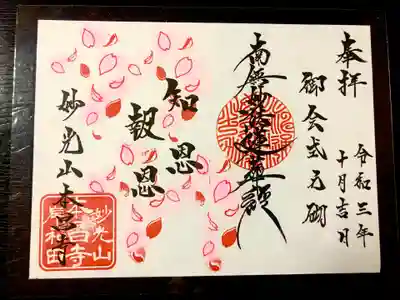 奉拝
令和三年
十月吉日
御会式
南無妙法蓮華経
知恩
報恩
妙光山本昌寺
妙光山
本昌寺
岸和田